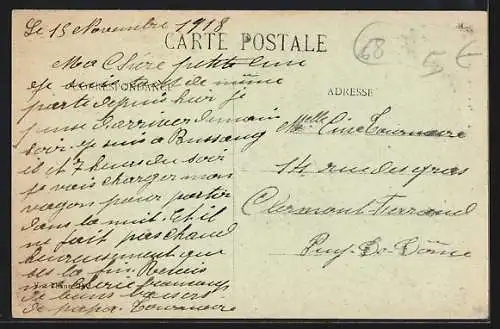 Le 15 Novembre 1918
CARTE POSTALE
68
5 €
Ma Chère petite
je suis tout de même
CORRESPONDANCE
parti depuis hier je
pense arriver demain
soir. je suis à Bussang
il et 7 heures du soir
je vais charger mon
wagon pour partir
dans la nuit. Et il
ne fait pas chaud
heureusement que
ses la fin. Reçois
ma chérie
de bons baisers
de papa. Tournaire
ADRESSE
Melle Line Tournaire
14 rue des gras
Clermont Ferrand
Puy-De-Dôme